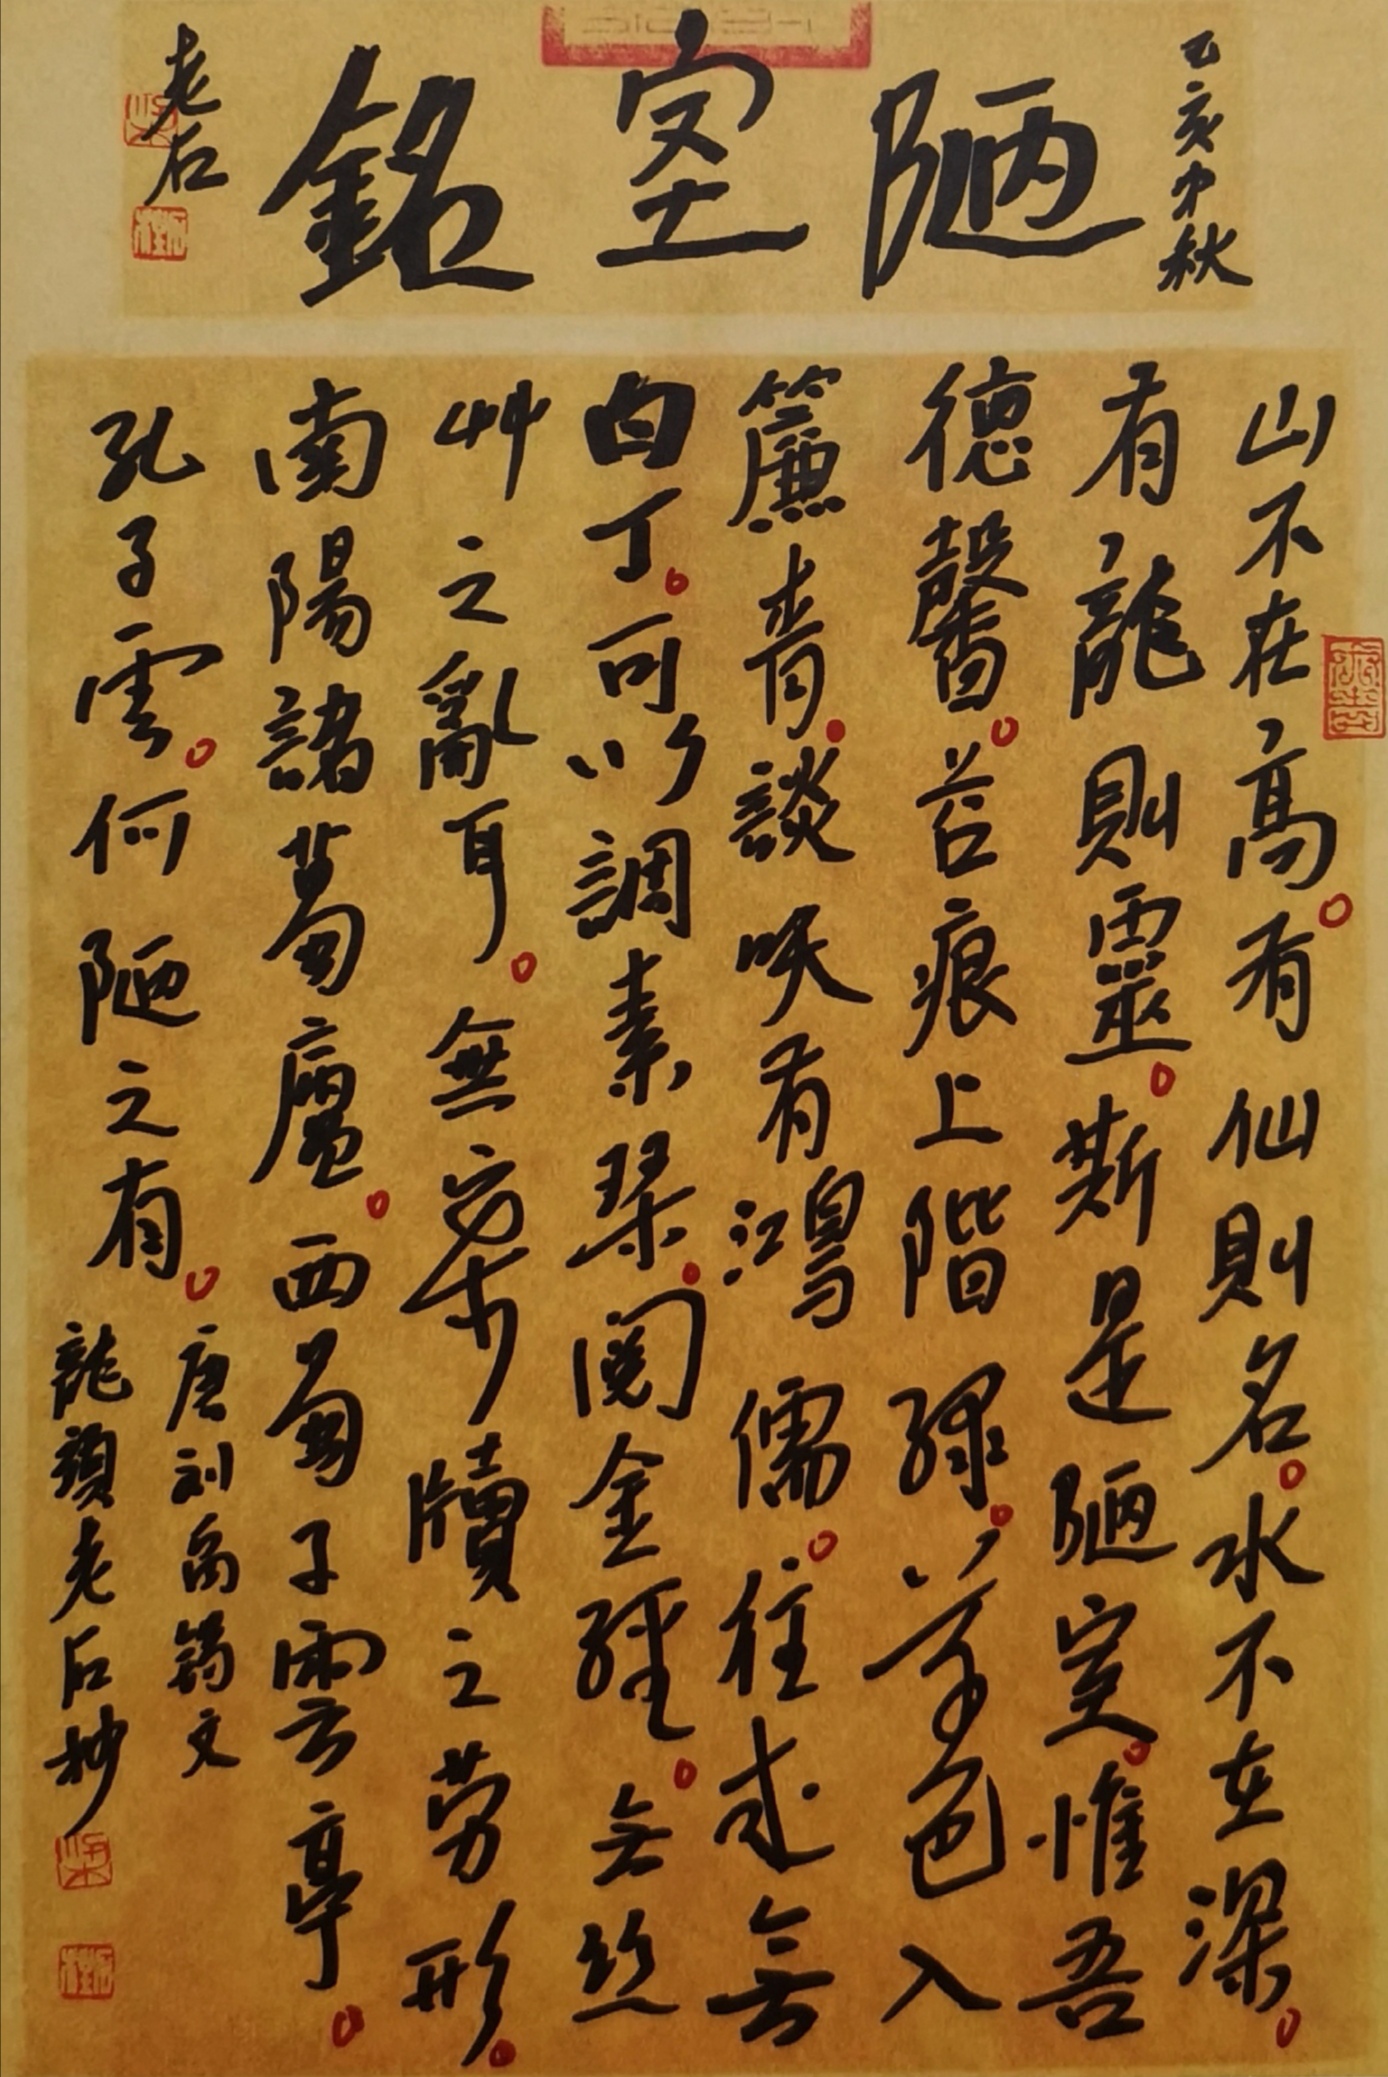 己亥中秋
陋室銘
老石
山不在高。有仙則名。水不在深。
有龍則靈。斯是陋室。惟吾
德馨。苔痕上階綠。草色入
簾青。談笑有鴻儒。往來無
白丁。可以調素琴。閱金經。無絲
竹之亂耳。無案牘之勞形。
南陽諸葛廬。西蜀子雲亭。
孔子雲。何陋之有。
唐刘禹錫文
龍頭老石抄